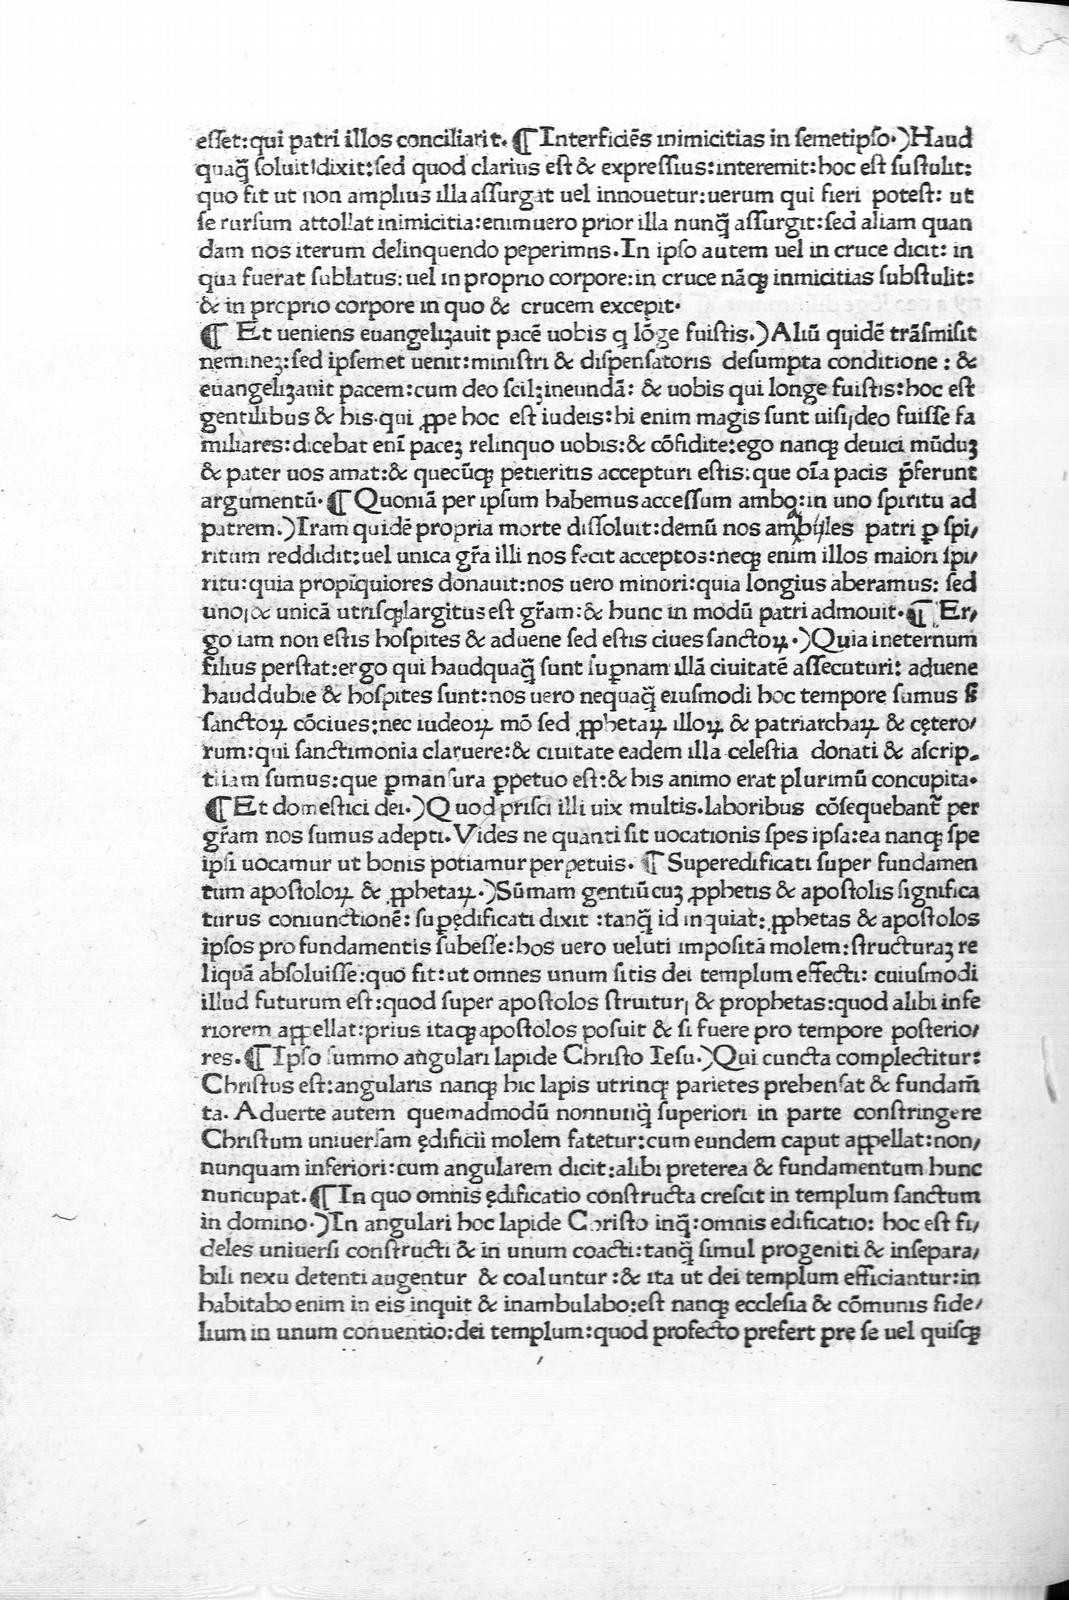 eſſet:qui patri illos conciliarit. ¶ Interficiēs inimicitias in ſemetipſo.)Haud
quaq̄ ſoluit!dixit:ſed quod clarius eſt & expreſſius:interemit:hoc eſt ſuſtulit:
quo fit ut non amplius illa aſſurgat uel innouetur:uerum qui fieri poteſt: ut
ſe rurſum attollat inimicitia:enimuero prior illa nunq̄ aſſurgit:ſed aliam quan
dam nos iterum delinquendo peperimns.In ipſo autem uel in cruce dicit: in
qua fuerat ſublatus: uel in proprio corpore:in cruce nāꝙ inmicitias ſubſtulit:
& in prcprio corpore in quo & crucem excepit.
¶ Et ueniens euangelizauit pacē uobis q lōge fuiſtis.)Aliū quidē trāſmiſit
nemineꝫ:ſed ipſemet uenit:miniſtri & diſpenſatoris deſumpta conditione : &
euangelizauit pacem:cum deo ſcilꝫineundā: & uobis qui longe fuiſtis:hoc eſt
gentilibus & his.qui ꝓpe hoc eſt iudeis:hi enim magis ſunt uiſi,deo fuiſſe fa
miliares:dicebat enī paceꝫ relinquo uobis:& cōfidite:ego nanꝙ deuici mūduꝫ
& pater uos amat:& quecūꝙ petieritis accepturi eſtis:que oīa pacis p̄ferunt
argumentū. ¶ Quoniā per ipſum habemus acceſſum ambo:in uno ſpiritu ad
patrem.)Iram quidē propria morte diſſoluit:demū nos les patri ꝑ ſpi/
ritum reddidit:uel unica gr̄a illi nos fecit acceptos:neꝙ enim illos maiori ſpi/
ritu:quia propīquiores donauit:nos uero minori:quia longius aberamus: ſed
uno,& unicā utriſꝙlargitus eſt gr̄am:& hunc in modū patri admouit. ¶ Er/
go iam non eſtis hoſpites & aduene ſed eſtis ciues ſanctoꝝ.)Quia in eternum
filius perſtat:ergo qui haudquaq̄ ſunt ſuꝑnam illā ciuitatē aſſecuturi: aduene
haud dubie & hoſpites ſunt:nos uero nequaq̄ eiuſmodi hoc tempore ſumus ſi
ſanctoꝝ cōciues:nec iudeoꝝ mō ſed ꝓphetaꝝ illoꝝ & patriarchaꝝ & cętero/
rum:qui ſanctimonia claruere:& ciuitate eadem illa celeſtia donati & aſcrip.
titiam ſumus:que ꝑmanſura ꝑpetuo eſt:& his animo erat plurimū concupita.
¶ Et domeſtici dei.)Quod priſci illi uix multis.laboribus cōſequebant̄ per
gr̄am nos ſumus adepti.Vides ne quanti ſit uocationis ſpes ipſa:ea nanꝙ ſpe
ipſi uocamur ut bonis potiamur perpetuis. ¶ Superedificati ſuper fundamen
tum apoſtoloꝝ & ꝓphetaꝝ.)Sūmam gentiū cuꝫ ꝓphetis & apoſtolis ſignifica
turus coniunctionē: ſuꝑędificati dixit :tanq̄ id inquiat: ꝓphetas & apoſtolos
ipſos pro fundamentis ſubeſſe:hos uero ueluti impoſitā molem:ſtructuraꝫ re
liquā abſoluiſſe:quo fit:ut omnes unum ſitis dei templum effecti: cuiuſmodi
illud futurum eſt:quod ſuper apoſtolos ſtruitur, & prophetas:quod alibi infe
riorem appellat:prius itaꝙ apoſtolos poſuit & ſi fuere pro tempore poſterio/
res. ¶ Ipſo ſummo angulari lapide Chriſto Ieſu.)Qui cuncta complectitur:
Chriſtus eſt:angularis nanꝙ hic lapis utrinꝙ parietes prehenſat & fundam̄
ta. Aduerte autem quemadmodū nonnunq̄ ſuperiori in parte conſtringere
Chriſtum uniuerſam ędificii molem fatetur:cum eundem caput appellat:non/
nunquam inferiori:cum angularem dicit:alibi preterea & fundamentum hunc
nuncupat. ¶ In quo omnis ędificatio conſtructa creſcit in templum ſanctum
in domino.)In angulari hoc lapide Chriſto inq̄:omnis edificatio: hoc eſt fi/
deles uniuerſi conſtructi & in unum coacti:tanq̄ ſimul progeniti & inſepara/
bili nexu detenti augentur & coaluntur :& ita ut dei templum efficiantur:in
habitabo enim in eis inquit & inambulabo:eſt nanꝙ eccleſia & cōmunis fide/
lium in unum conuentio:dei templum:quod profecto prefert pre ſe uel quiſꝙ